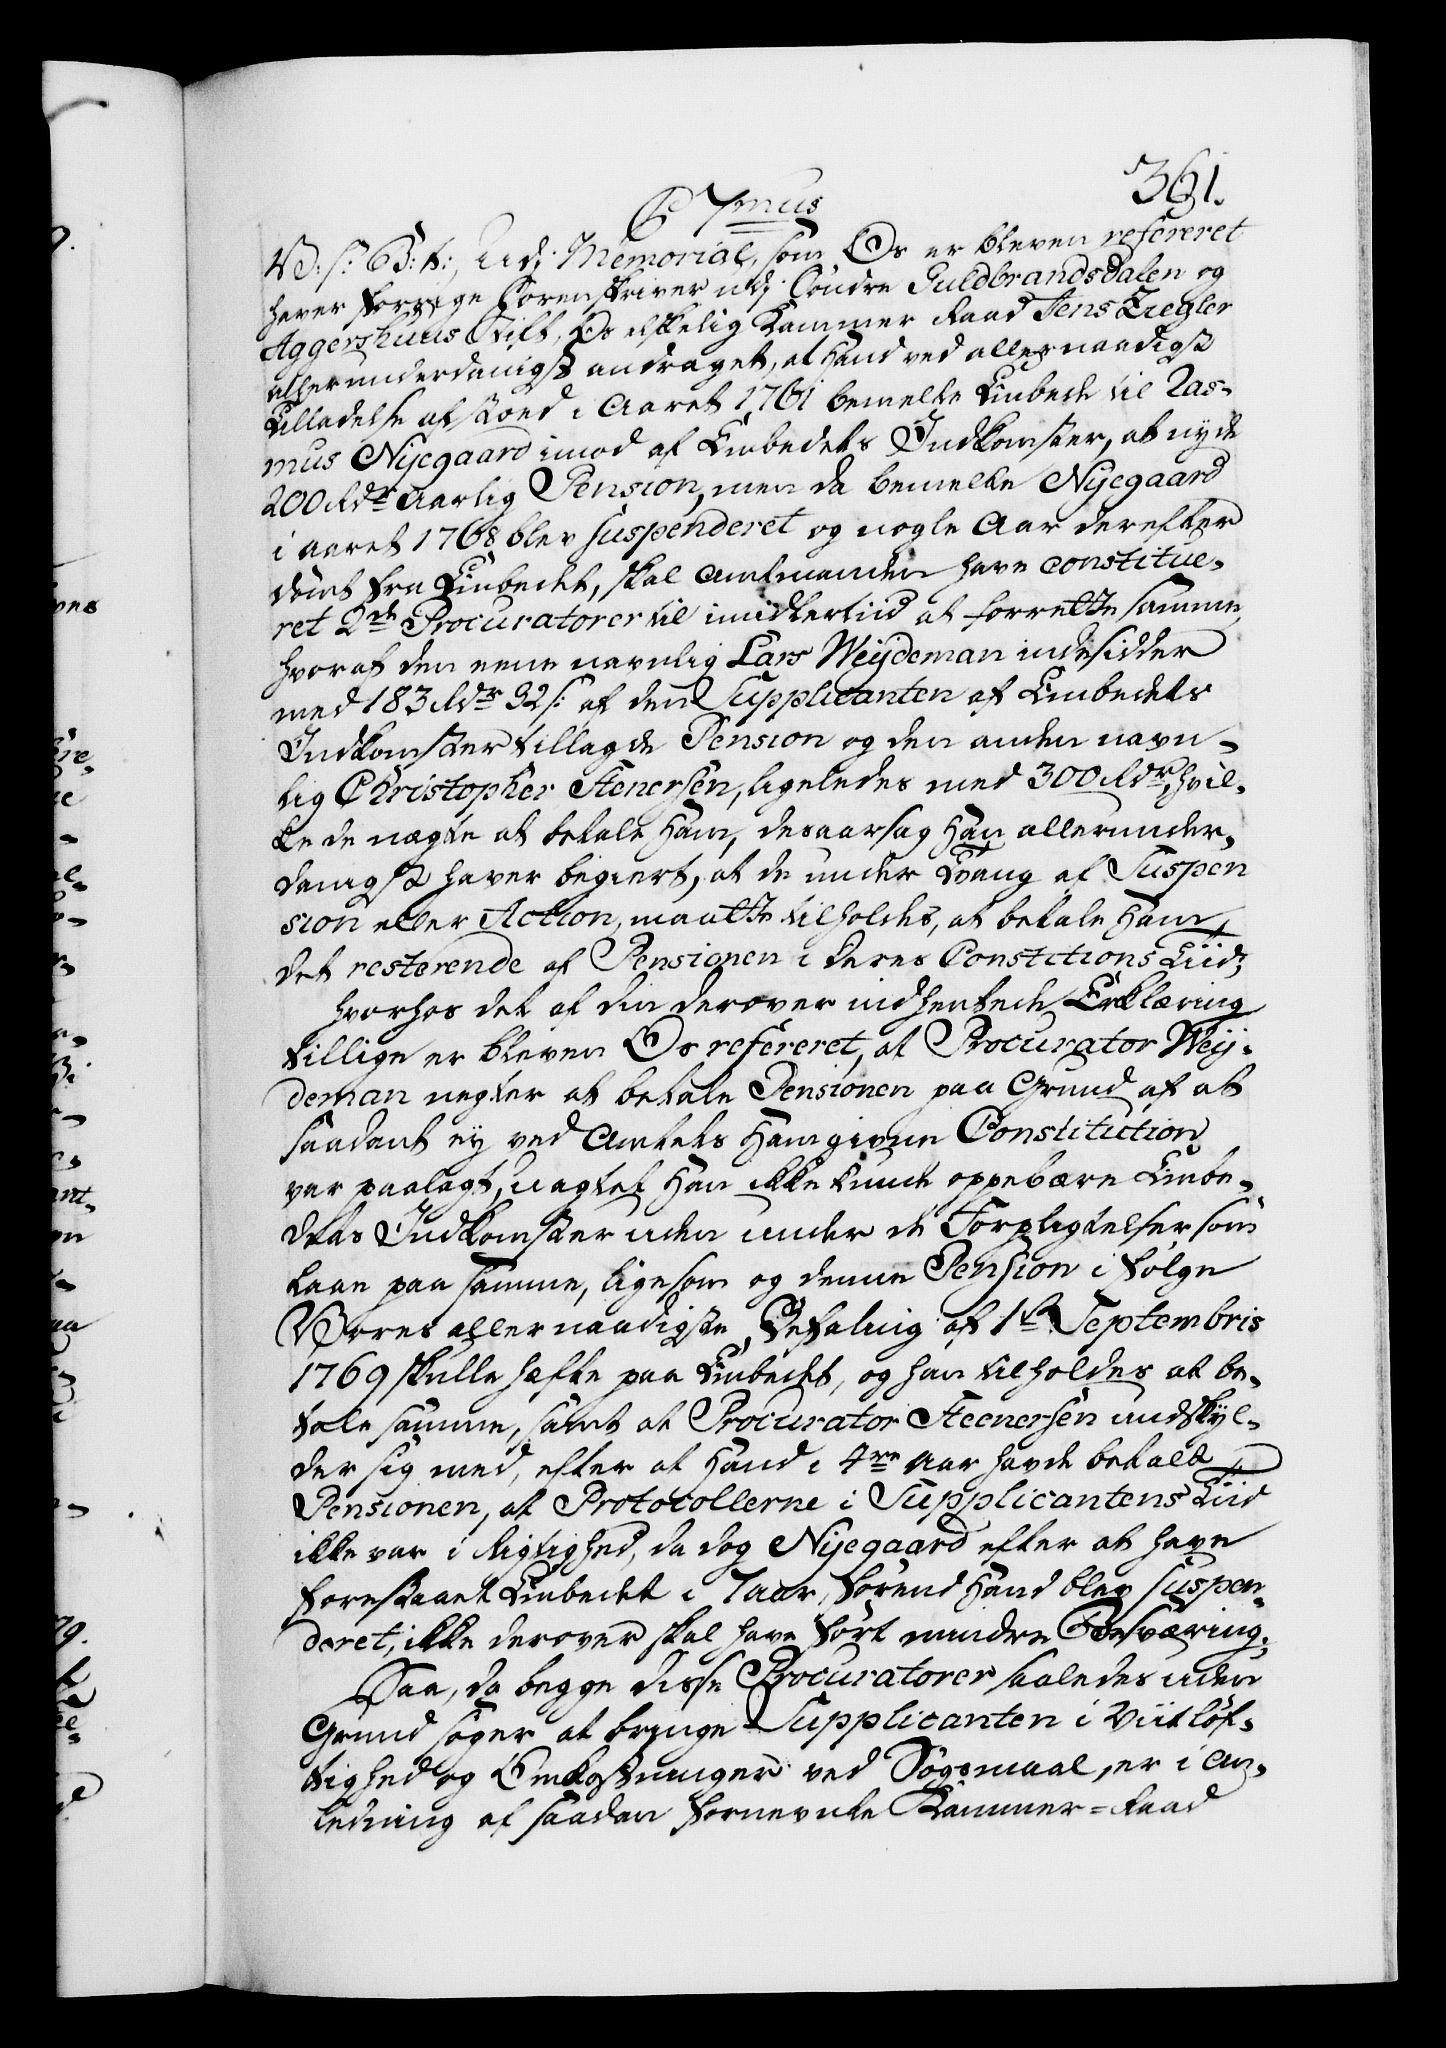 361.
C 7mus
V: S: G: t:, Udj Memorial, som Os er bleven refereret
haver forrige Sorenskriver udj Söndre Guldbrandsdalen og
Aggershuus Stift, Os elskelig Kammer Raad Jens Ziegler
allerunderdanigst andraget, at Hand ved allernaadigst
Tilladelse afstoed i Aaret 1761 bemelte Embede til Ras-
mus Nijegaard imod af Embedets Indkomster, at nyde
200 Rdr aarlig Pension, men da bemelte Nijegaard
i aaret 1768 blev suspenderet og nogle Aar derefter
dömt fra Embedet, skal Amtmanden have constitue-
ret 2de Procuratorer til imidlertiid at forrette samme,
hvoraf den eene navnlig Lars Weijdeman indesidder
med 183 Rdr 32 s: af den Supplicanten af Embedets
Indkomster tillagde Pension og den anden navn-
lig Christopher Stenersen, ligeledes med 300 Rdr, hvil-
ke de nægte at betale Ham, desaarsag Han allerunder-
danigst haver begiert, at de under Tvang af Suspen
sion eller Action, maatte tilholdes, at betale Ham
det resterende af Pensionen i deres Constitions Tiid;
hvorhos det af din derover indhentede Erklæring
tillige er bleven Os refereret, at Procurator Weij-
deman negter at betale Pensionen paa Grund af at
saadant ej ved Amtets Ham givne Constitution
var paalagt, uagtet Han ikke kunde oppebære Embe-
dets Indkomster uden under de Forpligtelser som
laae paa samme, ligesom og denne Pension i fölge
Vores allernaadigste Befaling af 1ste Septembris
1769 skulle hæfte paa Embedet, og han tilholdes at be-
tale samme, samt at Procurator Steenersen undskyl-
der sig med, efter at Hand i 4re Aar havde betalt
Pensionen, at Protocollerne i Supplicantens Tiid
ikke var i Rigtighed, da dog Nijegaard efter at have
forestaaet Embedet i 7 aar, förend Hand blev suspen-
deret, ikke derover skal have fört mindre Besværing.
Saa, da begge disse Procuratorer saaledes uden
Grund söger at bringe Supplicanten i Viitlöf-
tighed og Omkostninger ved Sögsmaal, er i An-
ledning af saadan fornevnte Kammer-Raad